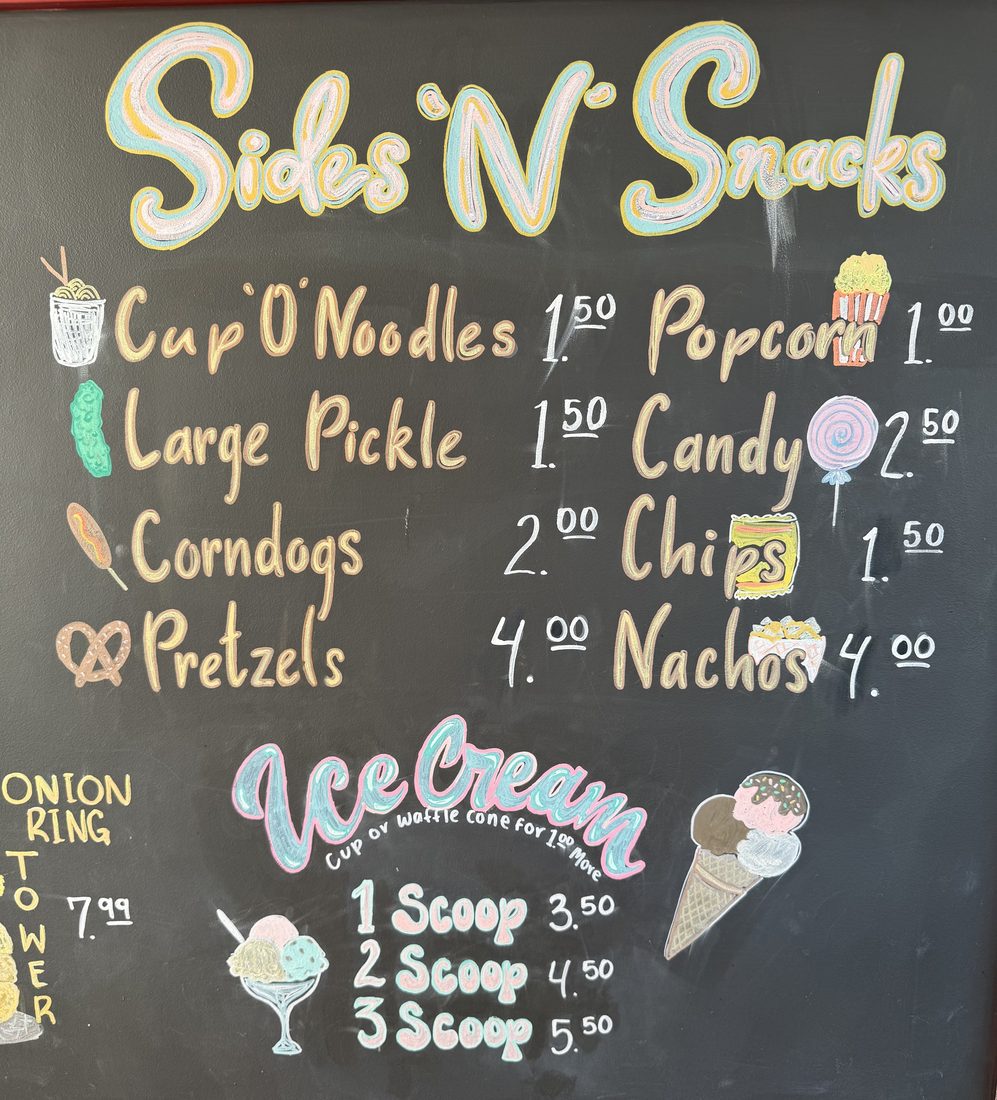 Sides 'N' Snacks
Cup 'O' Noodles 1.50
Large Pickle 1.50
Corndogs 2.00
Pretzels 4.00
Popcorn 1.00
Candy 2.50
Chips 1.50
Nachos 4.00
ONION
RING
TOWER
7.99
Ice Cream
Cup or Waffle cone for 1.00 More
1 Scoop 3.50
2 Scoop 4.50
3 Scoop 5.50